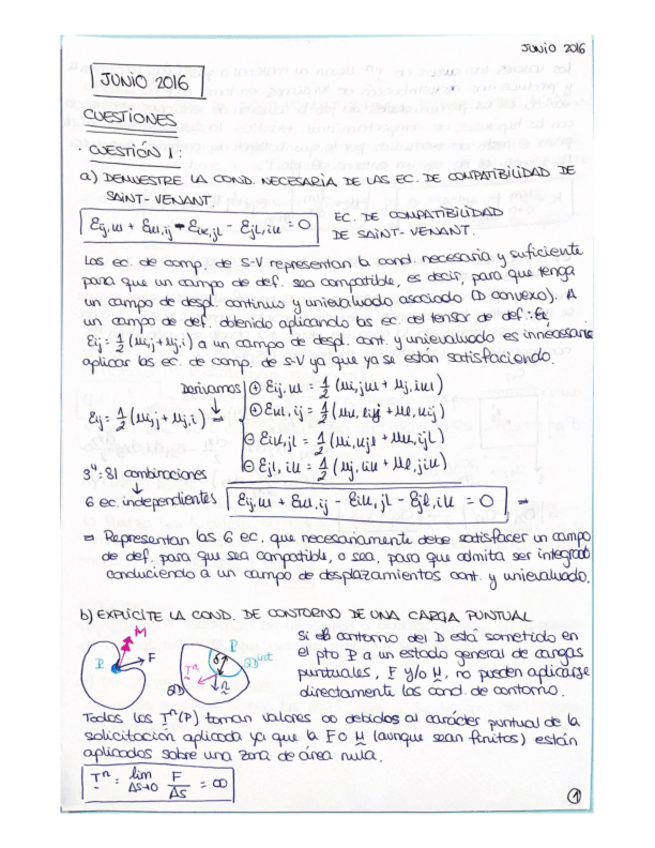 JUNIO 2016
JUNIO 2016
CUESTIONES
· CUESTIÓN 1:
a) DEMUESTRE LA COND. NECESARIA DE LAS EC. DE COMPATIBILIDAD DE
SAINT-VENANT.
εij,kl + εkl,ij - εik,jl - εjl,ik = 0 EC. DE COMPATIBILIDAD
DE SAINT-VENANT.
Las ec. de comp. de S-V representan la cond. necesaria y suficiente
para que un campo de def. sea compatible, es decir, para que tenga
un campo de despl. continuo y unievaluado asociado (D convexo). A
un campo de def. obtenido aplicando las ec. del tensor de def.:
εij = 1/2 (ui,j + uj,i) a un campo de despl. cont. y unievaluado es innecesario
aplicar las ec. de comp. de S-V ya que ya se están satisfaciendo.
Derivamos ⊕ εij,kl = 1/2 (ui,jkl + uj,ikl)
εij = 1/2 (ui,j + uj,i) → ⊕ εkl,ij = 1/2 (uk,lij + ul,kij)
⊖ εik,jl = 1/2 (ui,kjl + uk,ijl)
3⁴ = 81 combinaciones ⊖ εjl,ik = 1/2 (uj,lik + ul,jik)
↓
6 ec. independientes εij,kl + εkl,ij - εik,jl - εjl,ik = 0 ⇒
⇒ Representan las 6 ec. que necesariamente debe satisfacer un campo
de def. para que sea compatible, o sea, para que admita ser integrado
conduciendo a un campo de desplazamientos cont. y unievaluado.
b) EXPLICITE LA COND. DE CONTORNO DE UNA CARGA PUNTUAL
M P F P δ ∂D int T^n n ∂D
Si el contorno del D está sometido en
el pto P a un estado general de cargas
puntuales, F y/o M, no pueden aplicarse
directamente las cond. de contorno.
Todos los T^n(P) toman valores ∞ debidos al carácter puntual de la
solicitación aplicada ya que la F o M (aunque sean finitos) están
aplicados sobre una zona de área nula.
T^n = lim Δs→0 F/Δs = ∞
1